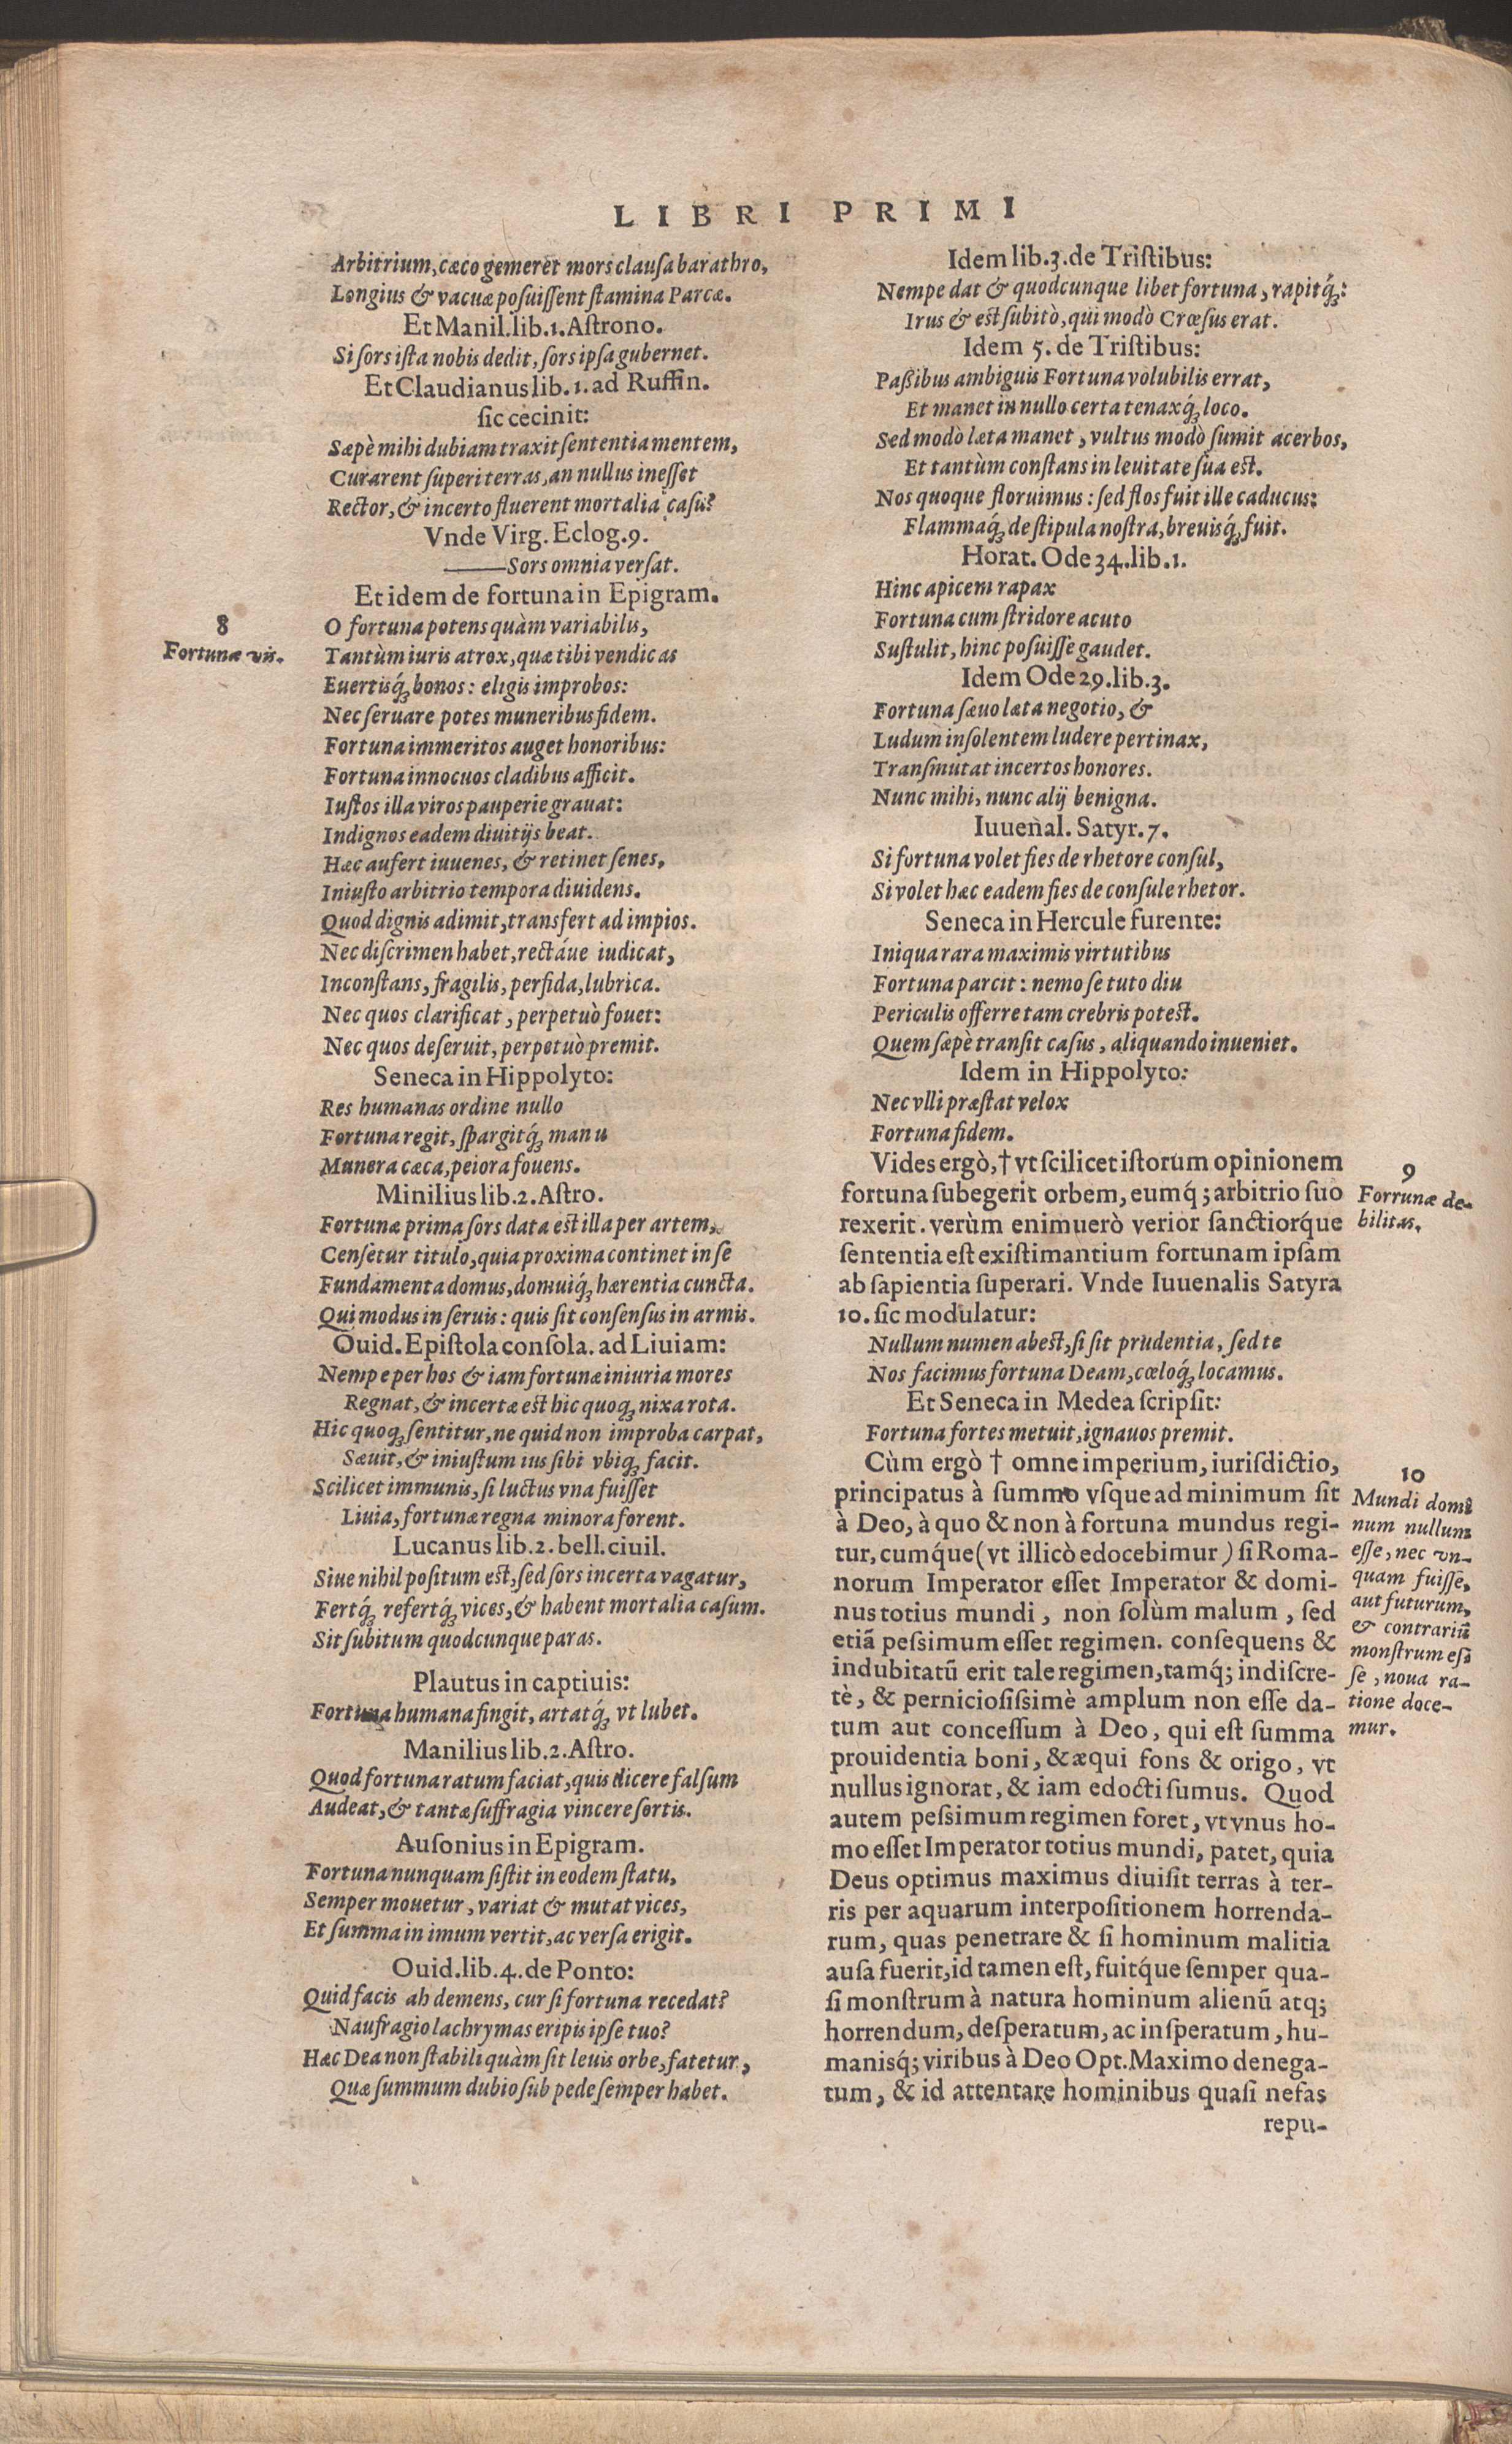 LIBRI PRIMI
Arbitrium, cæco gemeret mors clauſa barathro,
Longius & vacuæ poſuiſſent ſtamina Parcæ.
Et Manil. lib. 1. Aſtrono.
Si ſors iſta nobis dedit, ſors ipſa gubernet.
Et Claudianus lib. 1. ad Ruffin.
ſic cecinit:
Sæpè mihi dubiam traxit ſententia mentem,
Curarent ſuperi terras, an nullus ineſſet
Rector, & incerto fluerent mortalia caſu?
Vnde Virg. Eclog. 9.
——Sors omnia verſat.
Et idem de fortuna in Epigram.
8
Fortunæ vis.
O fortuna potens quàm variabilis,
Tantùm iuris atrox, quæ tibi vendicas
Euertisq́ꝫ bonos: eligis improbos:
Nec ſeruare potes muneribus fidem.
Fortuna immeritos auget honoribus:
Fortuna innocuos cladibus afficit.
Iuſtos illa viros pauperie grauat:
Indignos eadem diuitijs beat.
Hæc aufert iuuenes, & retinet ſenes,
Iniuſto arbitrio tempora diuidens.
Quod dignis adimit, transfert ad impios.
Nec diſcrimen habet, rectáue iudicat,
Inconſtans, fragilis, perfida, lubrica.
Nec quos clarificat, perpetuò fouet:
Nec quos deſeruit, perpetuò premit.
Seneca in Hippolyto:
Res humanas ordine nullo
Fortuna regit, ſpargitq́ꝫ manu
Munera cæca, peiora fouens.
Minilius lib. 2. Aſtro.
Fortunæ prima ſors data eſt illa per artem,
Cenſetur titulo, quia proxima continet in ſe
Fundamenta domus, domuiq́ꝫ hærentia cuncta.
Qui modus in ſeruis: quis ſit conſenſus in armis.
Ouid. Epiſtola conſola. ad Liuiam:
Nempe per hos & iam fortunæ iniuria mores
Regnat, & incertæ eſt hic quoqꝫ nixa rota.
Hic quoqꝫ ſentitur, ne quid non improba carpat,
Sæuit, & iniuſtum ius ſibi vbiqꝫ facit.
Scilicet immunis, ſi luctus vna fuiſſet
Liuia, fortunæ regna minora forent.
Lucanus lib. 2. bell. ciuil.
Siue nihil poſitum eſt, ſed ſors incerta vagatur,
Fertq́ꝫ refertq́ꝫ vices, & habent mortalia caſum.
Sit ſubitum quodcunque paras.
Plautus in captiuis:
Fortuna humana fingit, artatq́ꝫ vt lubet.
Manilius lib. 2. Aſtro.
Quod fortuna ratum faciat, quis dicere falſum
Audeat, & tantæ ſuffragia vincere ſortis.
Auſonius in Epigram.
Fortuna nunquam ſiſtit in eodem ſtatu,
Semper mouetur, variat & mutat vices,
Et ſumma in imum vertit, ac verſa erigit.
Ouid. lib. 4. de Ponto:
Quid facis ah demens, cur ſi fortuna recedat?
Naufragio lachrymas eripis ipſe tuo?
Hæc Dea non ſtabili quàm ſit leuis orbe, fatetur,
Quæ ſummum dubio ſub pede ſemper habet.
Idem lib. 3. de Triſtibus:
Nempe dat & quodcunque libet fortuna, rapitq́ꝫ:
Irus & eſt ſubitò, qui modò Crœſus erat.
Idem 5. de Triſtibus:
Paßibus ambiguis Fortuna volubilis errat,
Et manet in nullo certa tenaxq́ꝫ loco.
Sed modò læta manet, vultus modò ſumit acerbos,
Et tantùm conſtans in leuitate ſua eſt.
Nos quoque floruimus: ſed flos fuit ille caducus:
Flammaq́ꝫ de ſtipula noſtra, breuisq́ꝫ fuit.
Horat. Ode 34. lib. 1.
Hinc apicem rapax
Fortuna cum ſtridore acuto
Suſtulit, hinc poſuiſſe gaudet.
Idem Ode 29. lib. 3.
Fortuna ſæuo læta negotio, &
Ludum inſolentem ludere pertinax,
Tranſmutat incertos honores.
Nunc mihi, nunc alij benigna.
Iuuenal. Satyr. 7.
Si fortuna volet fies de rhetore conſul,
Si volet hæc eadem fies de conſule rhetor.
Seneca in Hercule furente:
Iniqua rara maximis virtutibus
Fortuna parcit: nemo ſe tuto diu
Periculis offerre tam crebris poteſt.
Quem ſæpè tranſit caſus, aliquando inueniet.
Idem in Hippolyto:
Nec vlli præſtat velox
Fortuna fidem.
Vides ergò, † vt ſcilicet iſtorum opinionem
fortuna ſubegerit orbem, eumq́; arbitrio ſuo
rexerit. verùm enimuerò verior ſanctiorq́ue
ſententia eſt exiſtimantium fortunam ipſam
ab ſapientia ſuperari. Vnde Iuuenalis Satyra
10. ſic modulatur:
9
Forrunæ de-
bilitas.
Nullum numen abeſt, ſi ſit prudentia, ſed te
Nos facimus fortuna Deam, cœloq́ꝫ locamus.
Et Seneca in Medea ſcripſit:
Fortuna fortes metuit, ignauos premit.
Cùm ergò † omne imperium, iuriſdictio,
principatus à ſummo vſque ad minimum ſit
à Deo, à quo & non à fortuna mundus regi-
tur, cumq́ue (vt illicò edocebimur) ſi Roma-
norum Imperator eſſet Imperator & domi-
nus totius mundi, non ſolùm malum, ſed
etiã peſsimum eſſet regimen. conſequens &
indubitatũ erit tale regimen, tamq́; indiſcre-
tè, & pernicioſiſsimè amplum non eſſe da-
tum aut conceſſum à Deo, qui eſt ſumma
prouidentia boni, & æqui fons & origo, vt
nullus ignorat, & iam edocti ſumus. Quod
autem peſsimum regimen foret, vt vnus ho-
mo eſſet Imperator totius mundi, patet, quia
Deus optimus maximus diuiſit terras à ter-
ris per aquarum interpoſitionem horrenda-
rum, quas penetrare & ſi hominum malitia
auſa fuerit, id tamen eſt, fuitq́ue ſemper qua-
ſi monſtrum à natura hominum alienũ atq;
horrendum, deſperatum, ac inſperatum, hu-
manisq́; viribus à Deo Opt. Maximo denega-
tum, & id attentare hominibus quaſi nefas
repu-
10
Mundi domi
num nullum
eſſe, nec vn-
quam fuiſſe,
aut futurum,
& contrariũ
monſtrum eſ-
ſe, noua ra-
tione doce-
mur.